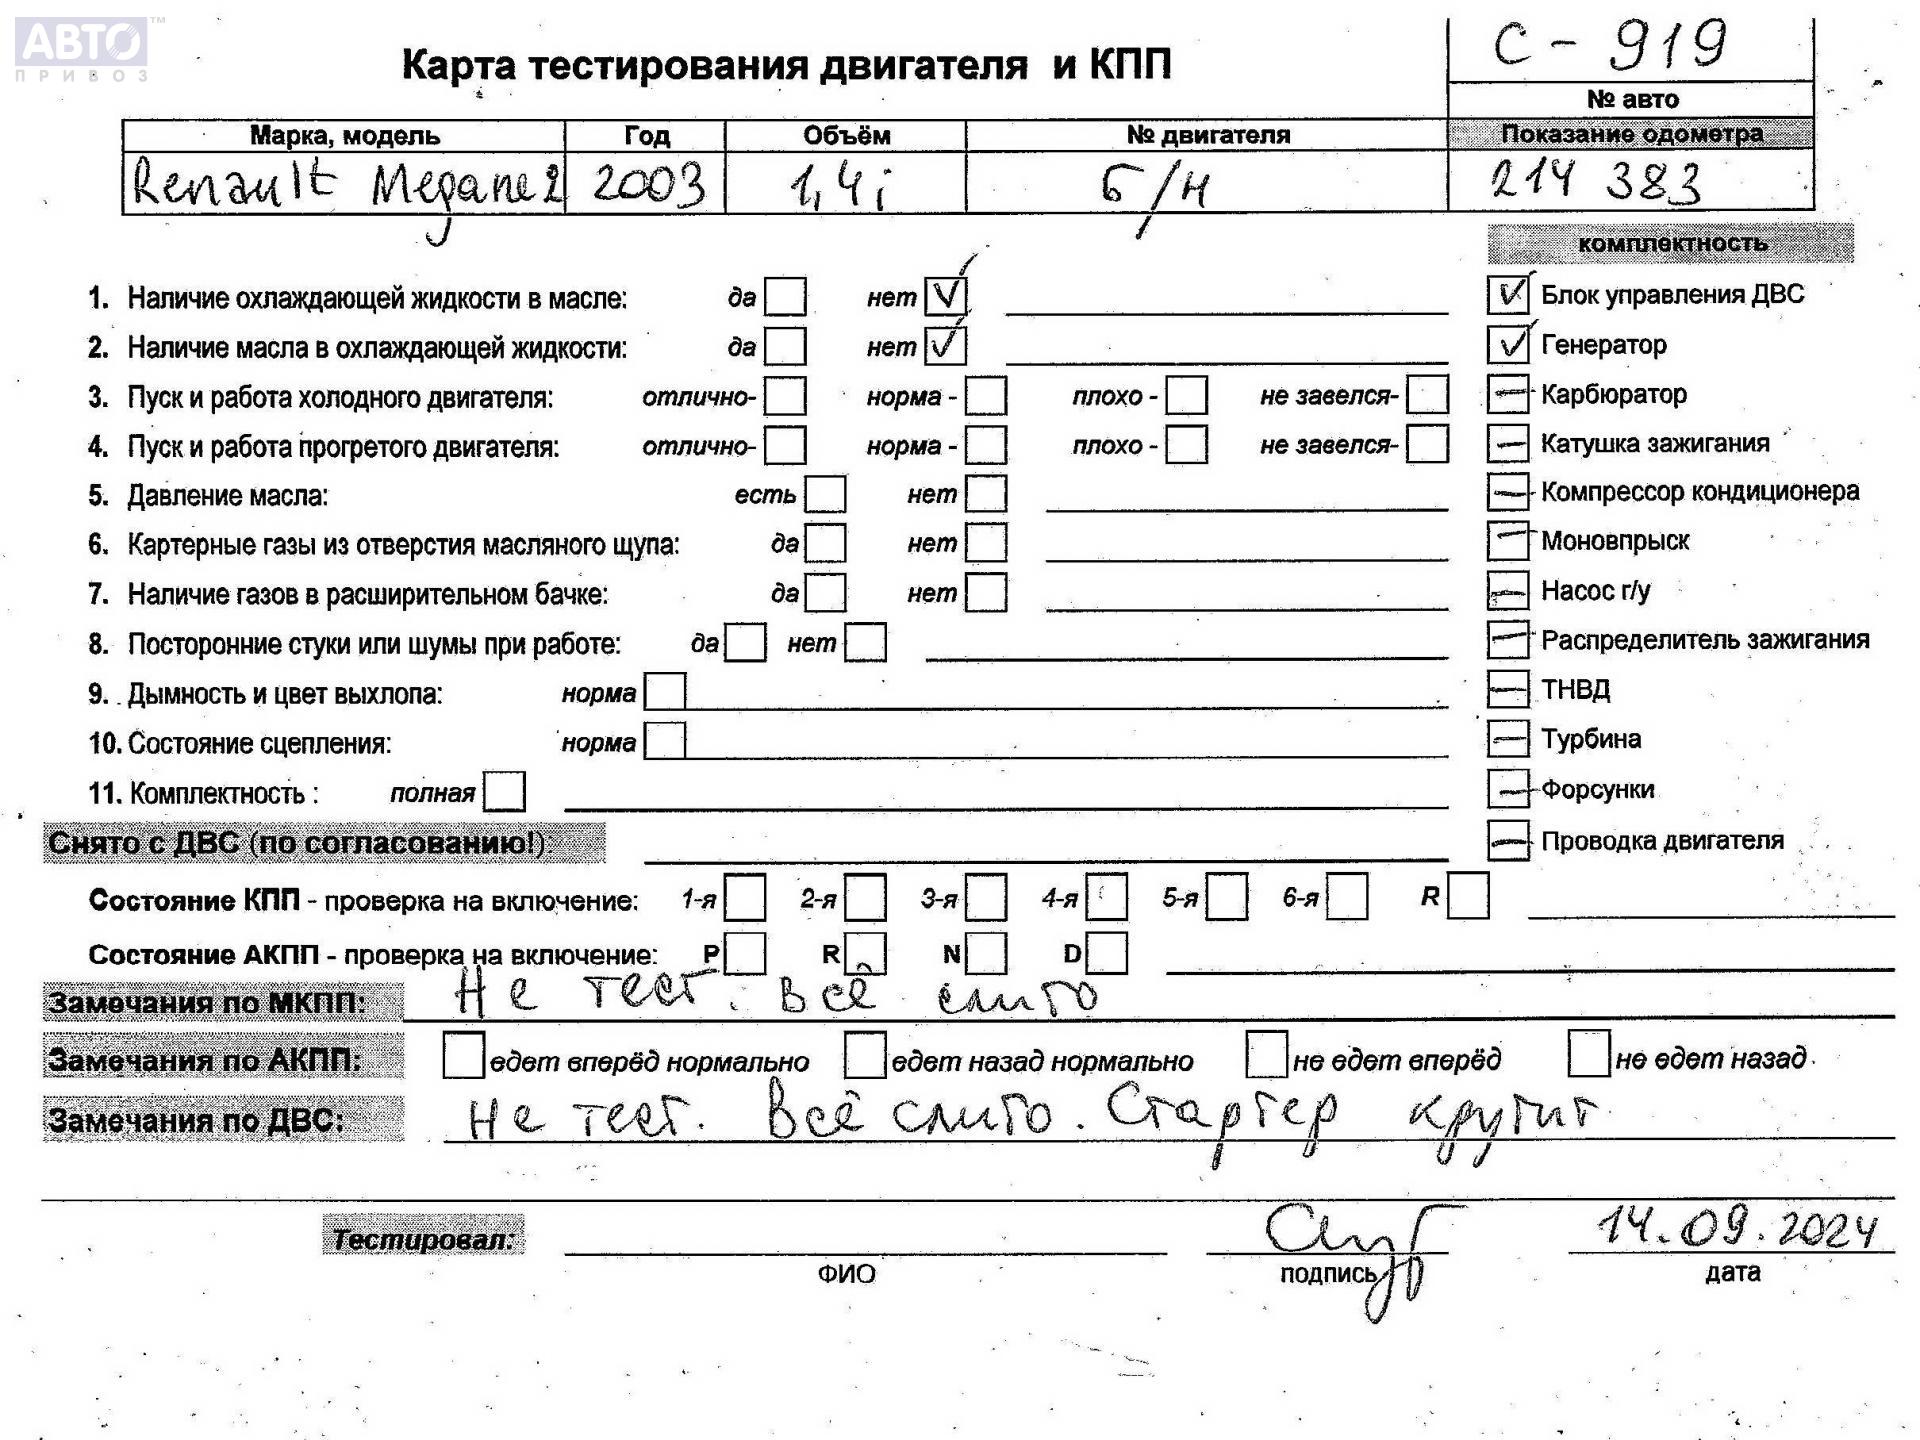 АВТО™
ПРИВОЗ
Карта тестирования двигателя и КПП
С - 919
№ авто
Марка, модель Год Объём № двигателя Показание одометра
Renault Megane 2 2003 1,4i Б/Н 214 383
комплектность
1. Наличие охлаждающей жидкости в масле: да нет ✓
✓ Блок управления ДВС
2. Наличие масла в охлаждающей жидкости: да нет ✓
✓ Генератор
3. Пуск и работа холодного двигателя: отлично- норма - плохо - не завелся-
— Карбюратор
4. Пуск и работа прогретого двигателя: отлично- норма - плохо - не завелся-
— Катушка зажигания
5. Давление масла: есть нет
— Компрессор кондиционера
6. Картерные газы из отверстия масляного щупа: да нет
— Моновпрыск
7. Наличие газов в расширительном бачке: да нет
— Насос г/у
8. Посторонние стуки или шумы при работе: да нет
— Распределитель зажигания
9. Дымность и цвет выхлопа: норма
— ТНВД
10. Состояние сцепления: норма
— Турбина
11. Комплектность : полная
— Форсунки
Снято с ДВС (по согласованию!):
— Проводка двигателя
Состояние КПП - проверка на включение: 1-я 2-я 3-я 4-я 5-я 6-я R
Состояние АКПП - проверка на включение: P R N D
Замечания по МКПП: Не тест. Всё слито
Замечания по АКПП: едет вперёд нормально едет назад нормально не едет вперёд не едет назад
Замечания по ДВС: Не тест. Всё слито. Стартер крутит
Тестировал: 14.09.2024
ФИО подпись дата